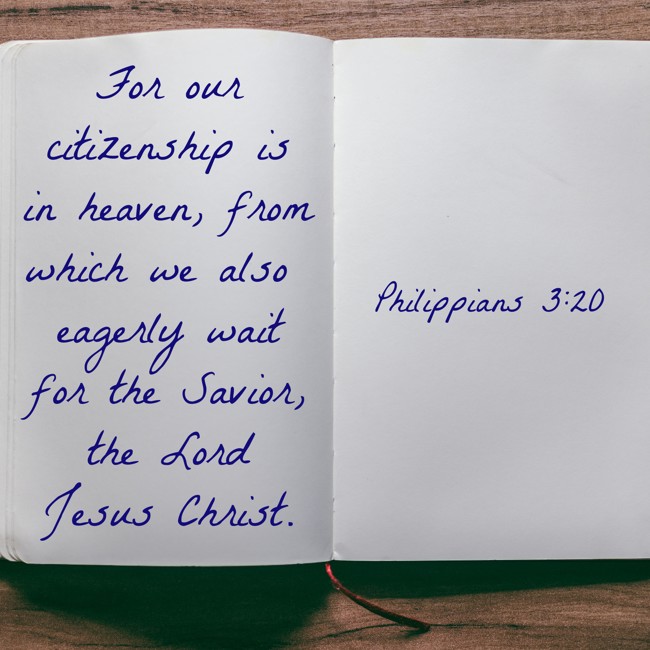 For our
citizenship is
in heaven, from
which we also
eagerly wait
for the Savior,
the Lord
Jesus Christ.
Philippians 3:20